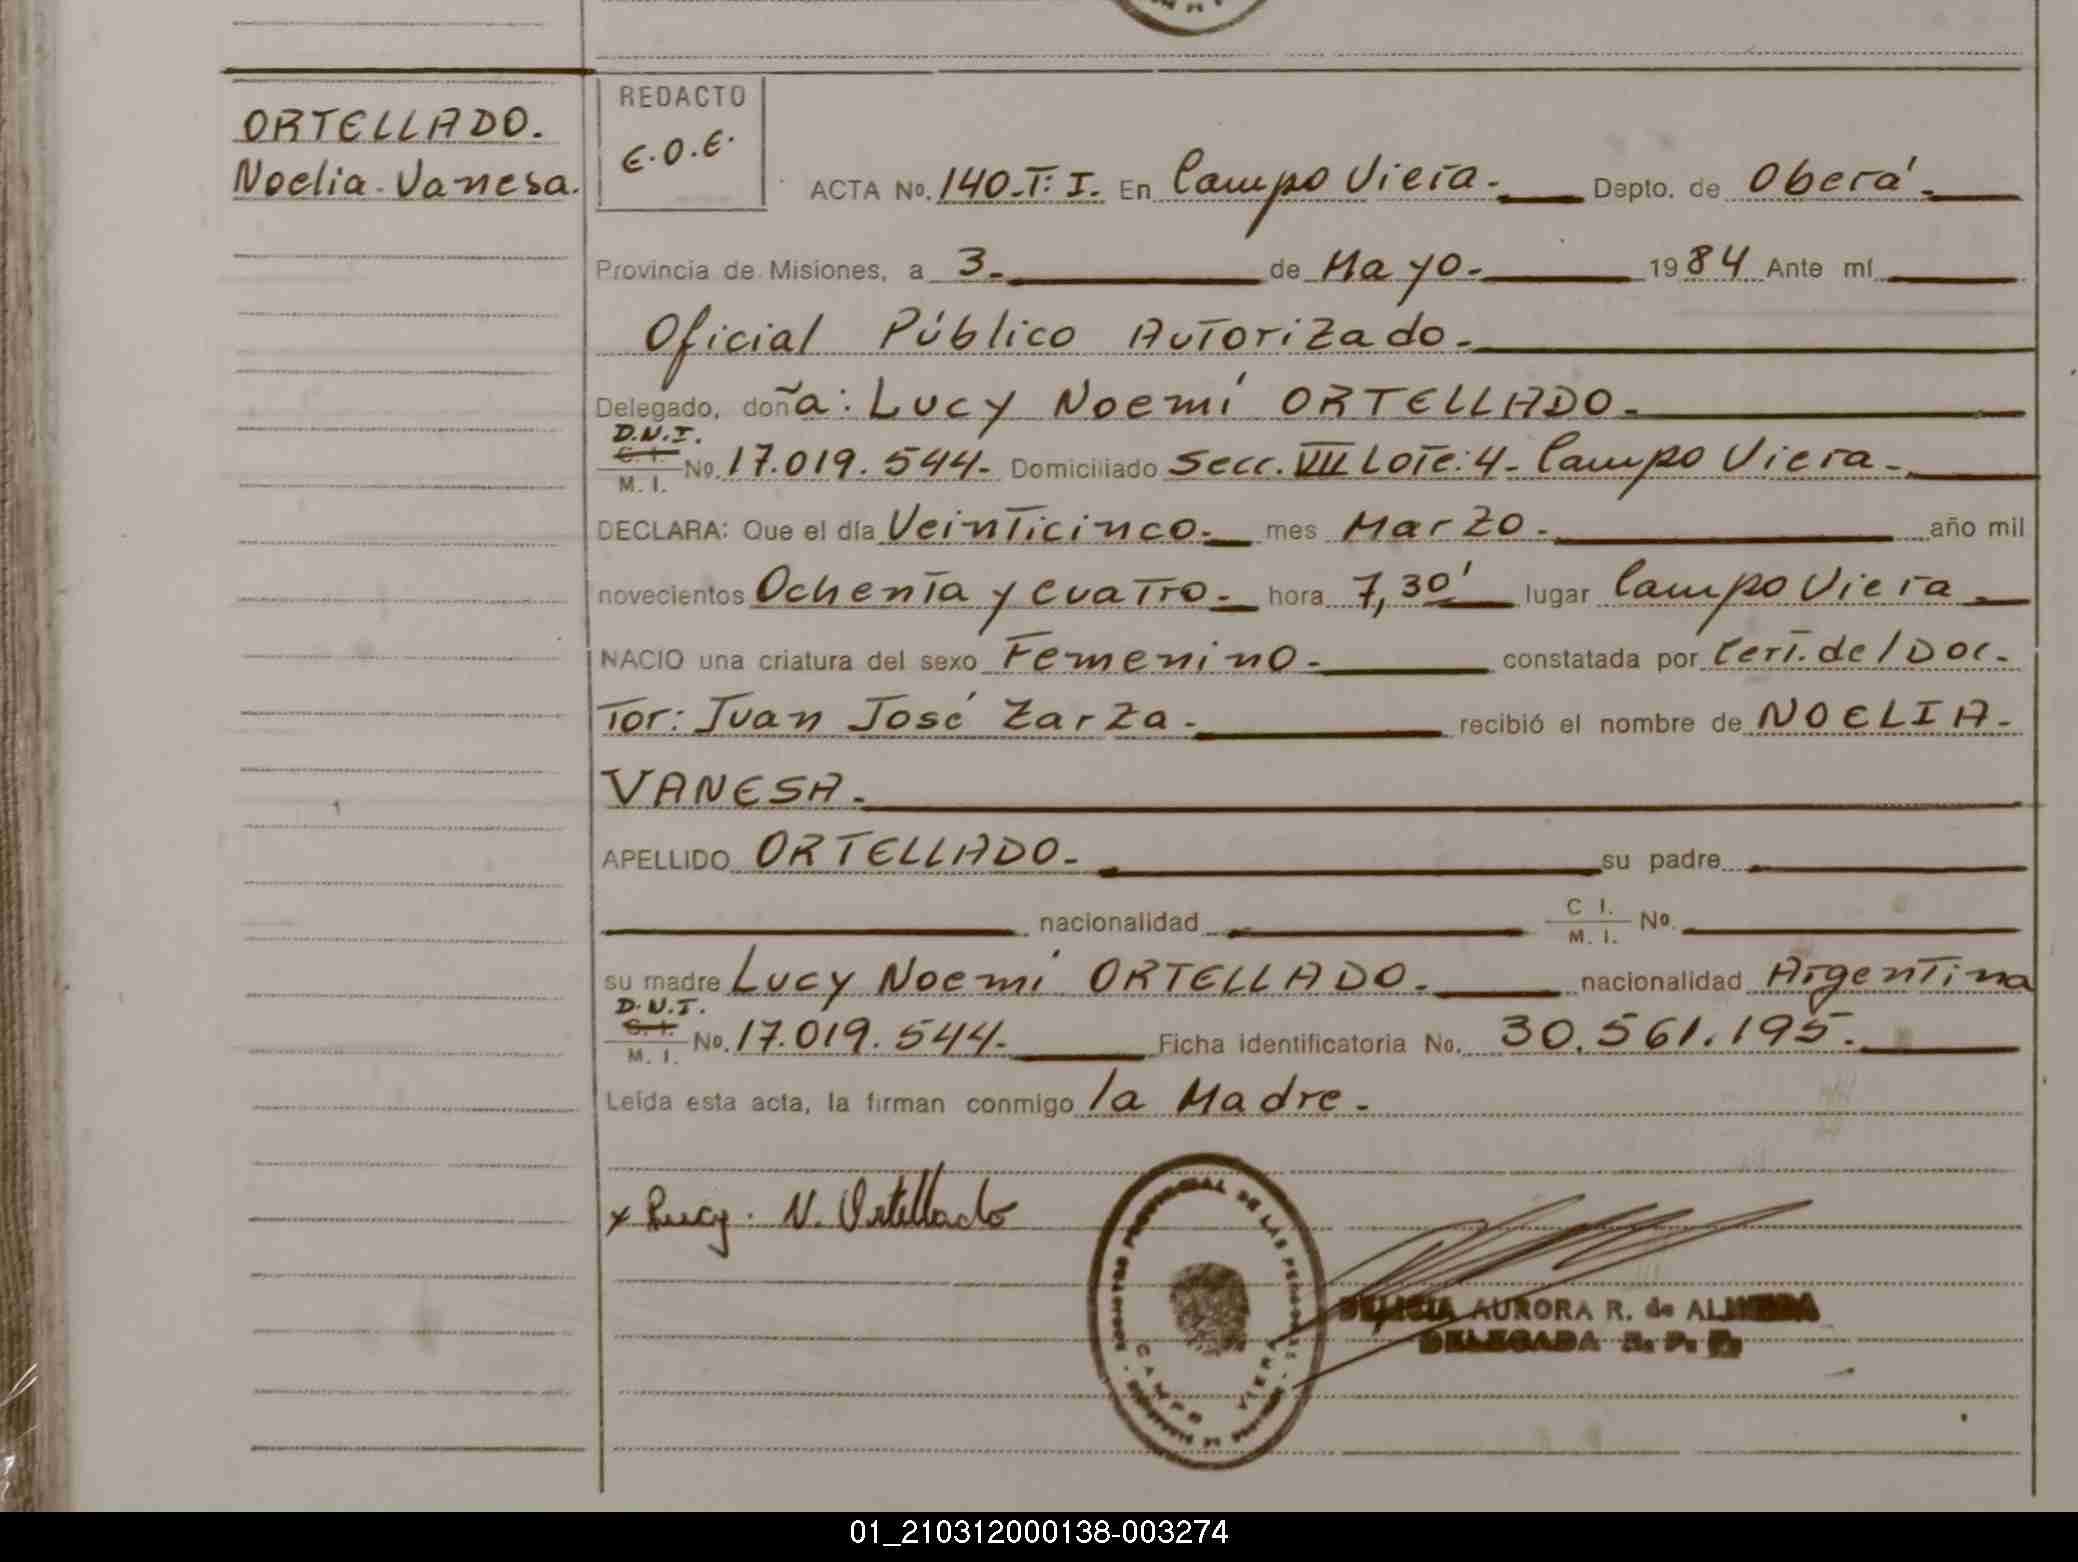 ORTELLADO.
Noelia Vanesa.
REDACTO
E.O.E.
ACTA No. 140.T: I. En Campo Viera. Depto. de Oberá.
Provincia de Misiones, a 3. de Mayo. 1984 Ante mí
Oficial Público Autorizado.
Delegado, doña: Lucy Noemí ORTELLADO.
D.N.I.
C. I.
M. I. No. 17.019.544. Domiciliado Secc. VII Lote: 4. Campo Viera.
DECLARA: Que el día Veinticinco. mes Marzo. año mil
novecientos Ochenta y cuatro. hora 7,30' lugar Campo Viera
NACIO una criatura del sexo Femenino. constatada por Cert. del Doc-
tor: Juan José Zarza. recibió el nombre de NOELIA.
VANESA.
APELLIDO ORTELLADO. su padre
nacionalidad C I. M. I. No.
su madre Lucy Noemí ORTELLADO. nacionalidad Argentina
D.N.I.
C. I.
M. I. No. 17.019.544. Ficha identificatoria No. 30.561.195.
Leída esta acta, la firman conmigo la Madre.
x Lucy. N. Ortellado
PROVINCIAL DE LAS PERSONAS
CAMPO VIERA
DELICIA AURORA R. de ALMEIDA
DELEGADA R. P. P.
01_210312000138-003274